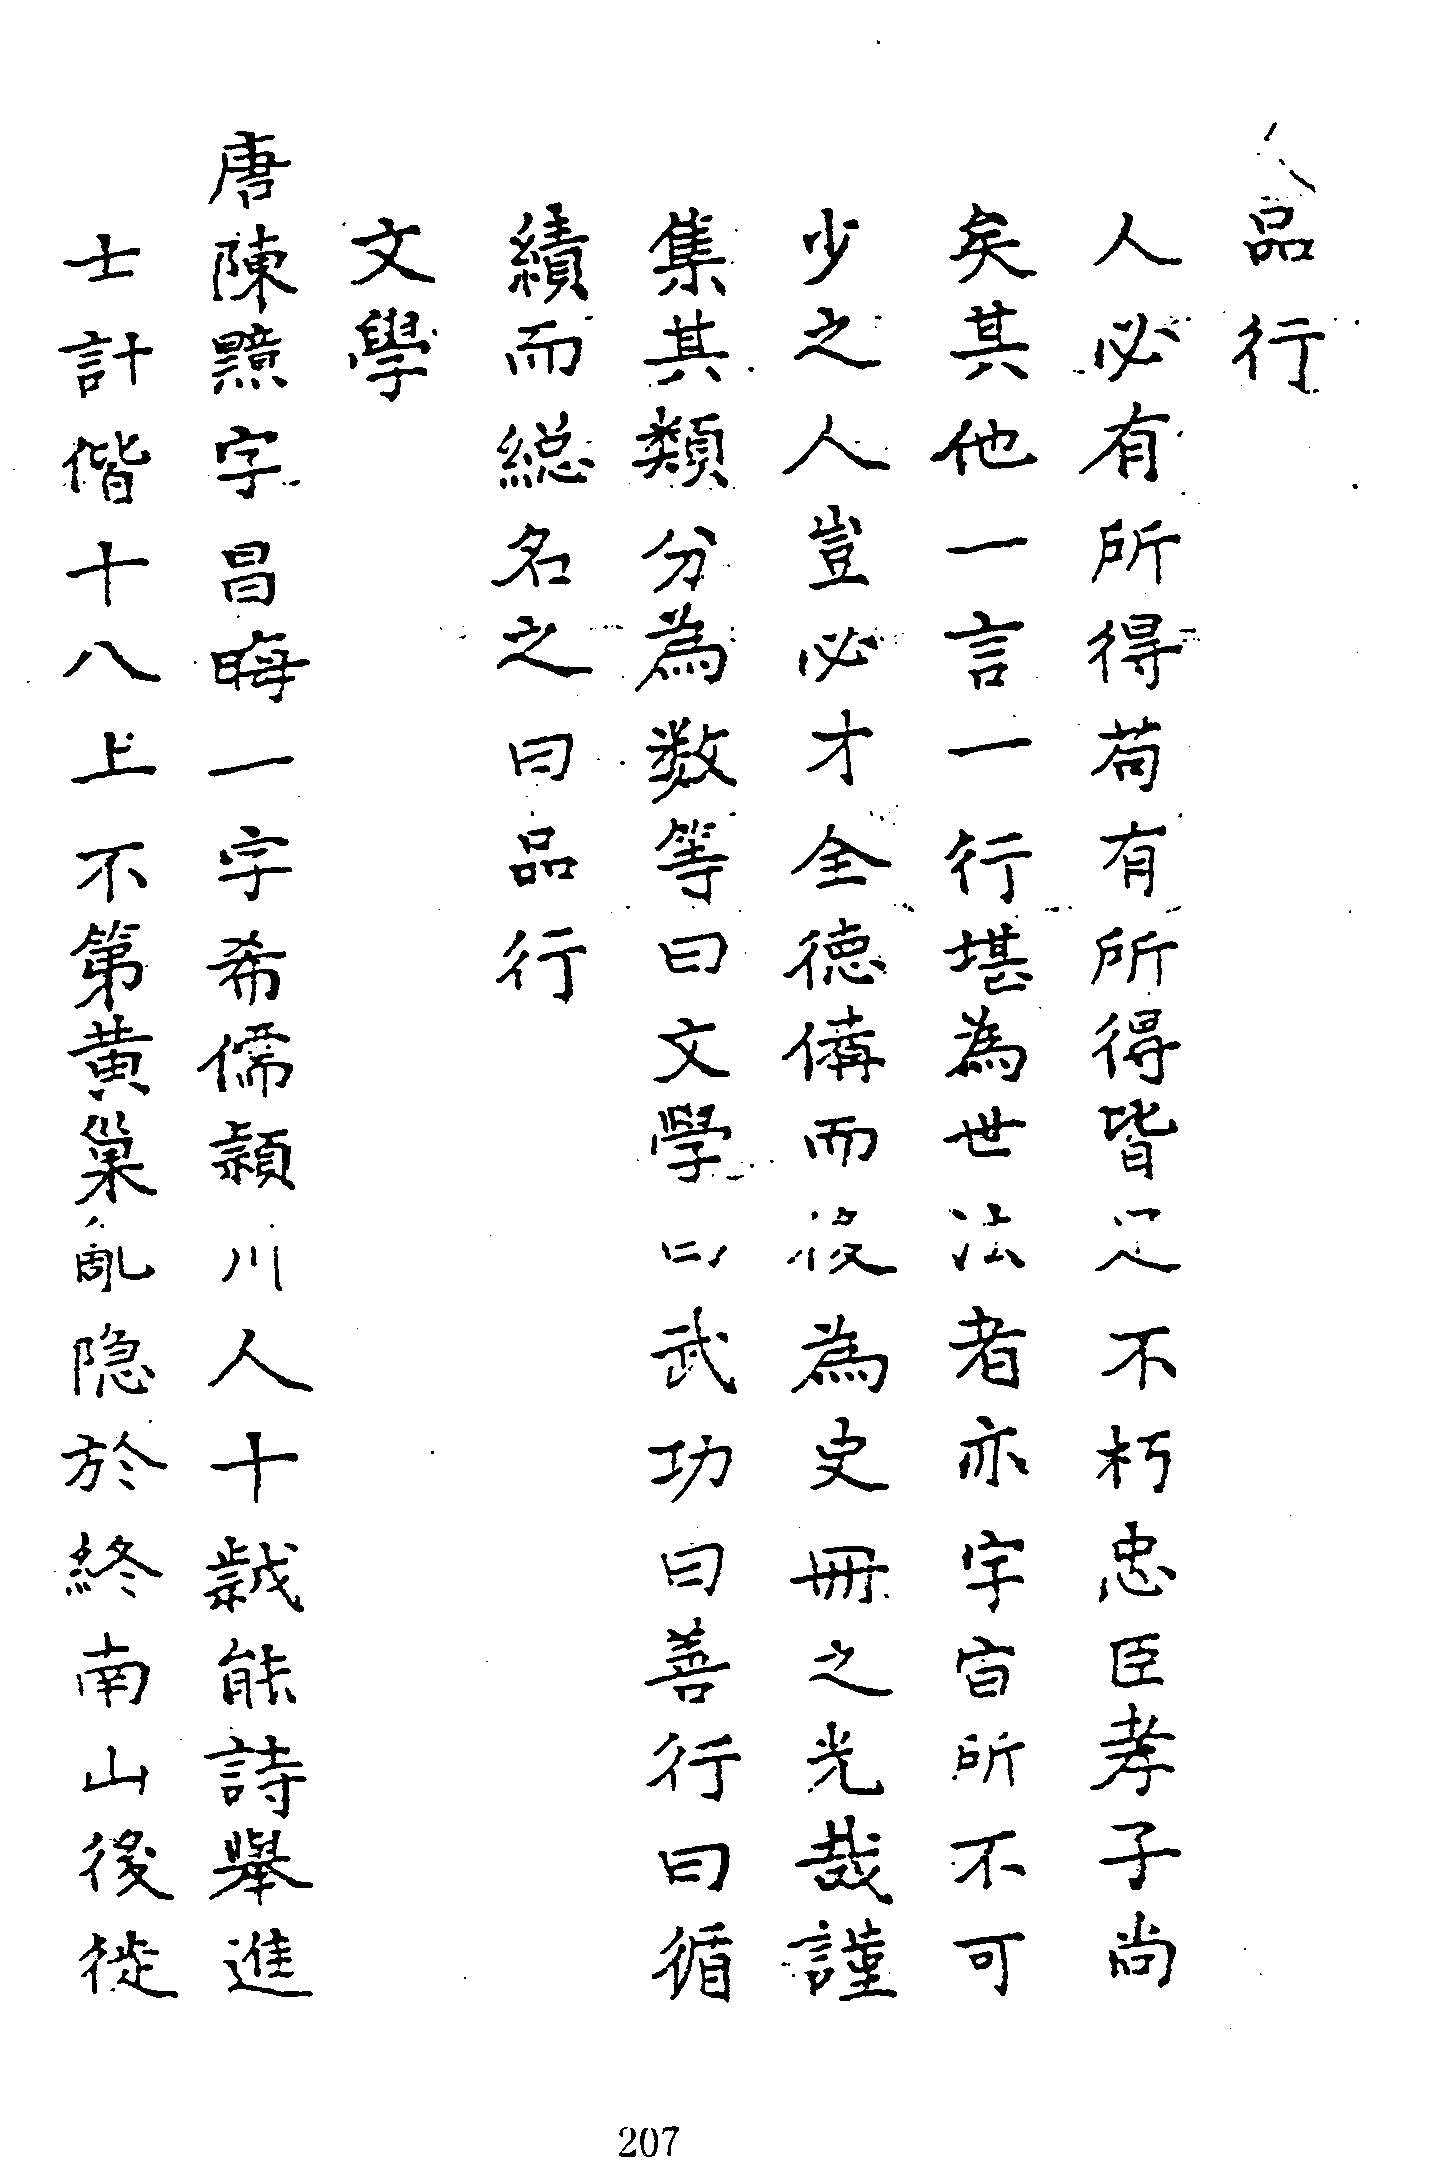 品行
人必有所得苟有所得皆足不朽忠臣孝子尚
矣其他一言一行堪為世法者亦宇宙所不可
少之人豈必才全德備而後為史冊之光哉謹
集其類分為数等曰文學曰武功曰善行曰循
績而總名之曰品行
文學
唐陳黯字昌晦一字希儒潁川人十歲能詩舉進
士計偕十八上不第黃巢亂隐於終南山後徙
207